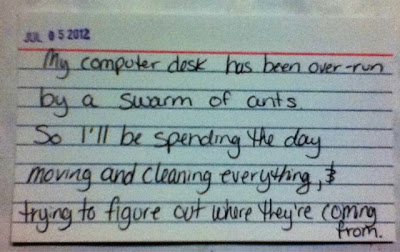 JUL 05 2012
My computer desk has been over-run
by a swarm of ants.
So I'll be spending the day
moving and cleaning everything, &
trying to figure out where they're coming
from.